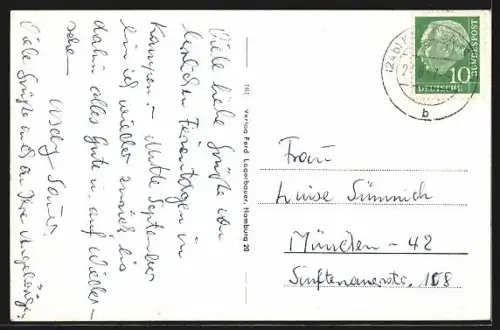 Viele liebe Grüße von
herrlichen Ferientagen in
Kampen. – Mitte September
bin ich wieder zurück bis
dahin alles Gute u. auf Wieder-
sehen
Viele Grüße auch an Ihre Angehörigen
161 Verlag Ferd. Lagerbauer, Hamburg 20
(24b)
b
DEUTSCHE
BUNDESPOST
10
Frau
Luise Sümmich
München - 42
Senftenauerstr. 168